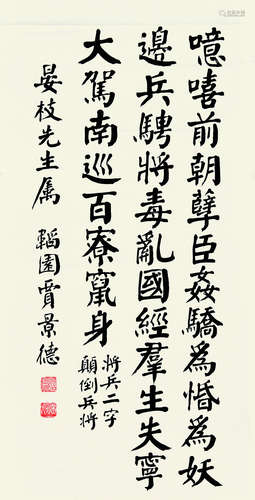 噫嘻前朝孽臣姦驕為惛為妖
邊兵騁將毒亂國經羣生失寧
大駕南巡百寮竄身
將兵二字
顛倒兵將
晏枝先生属 韜園賈景德